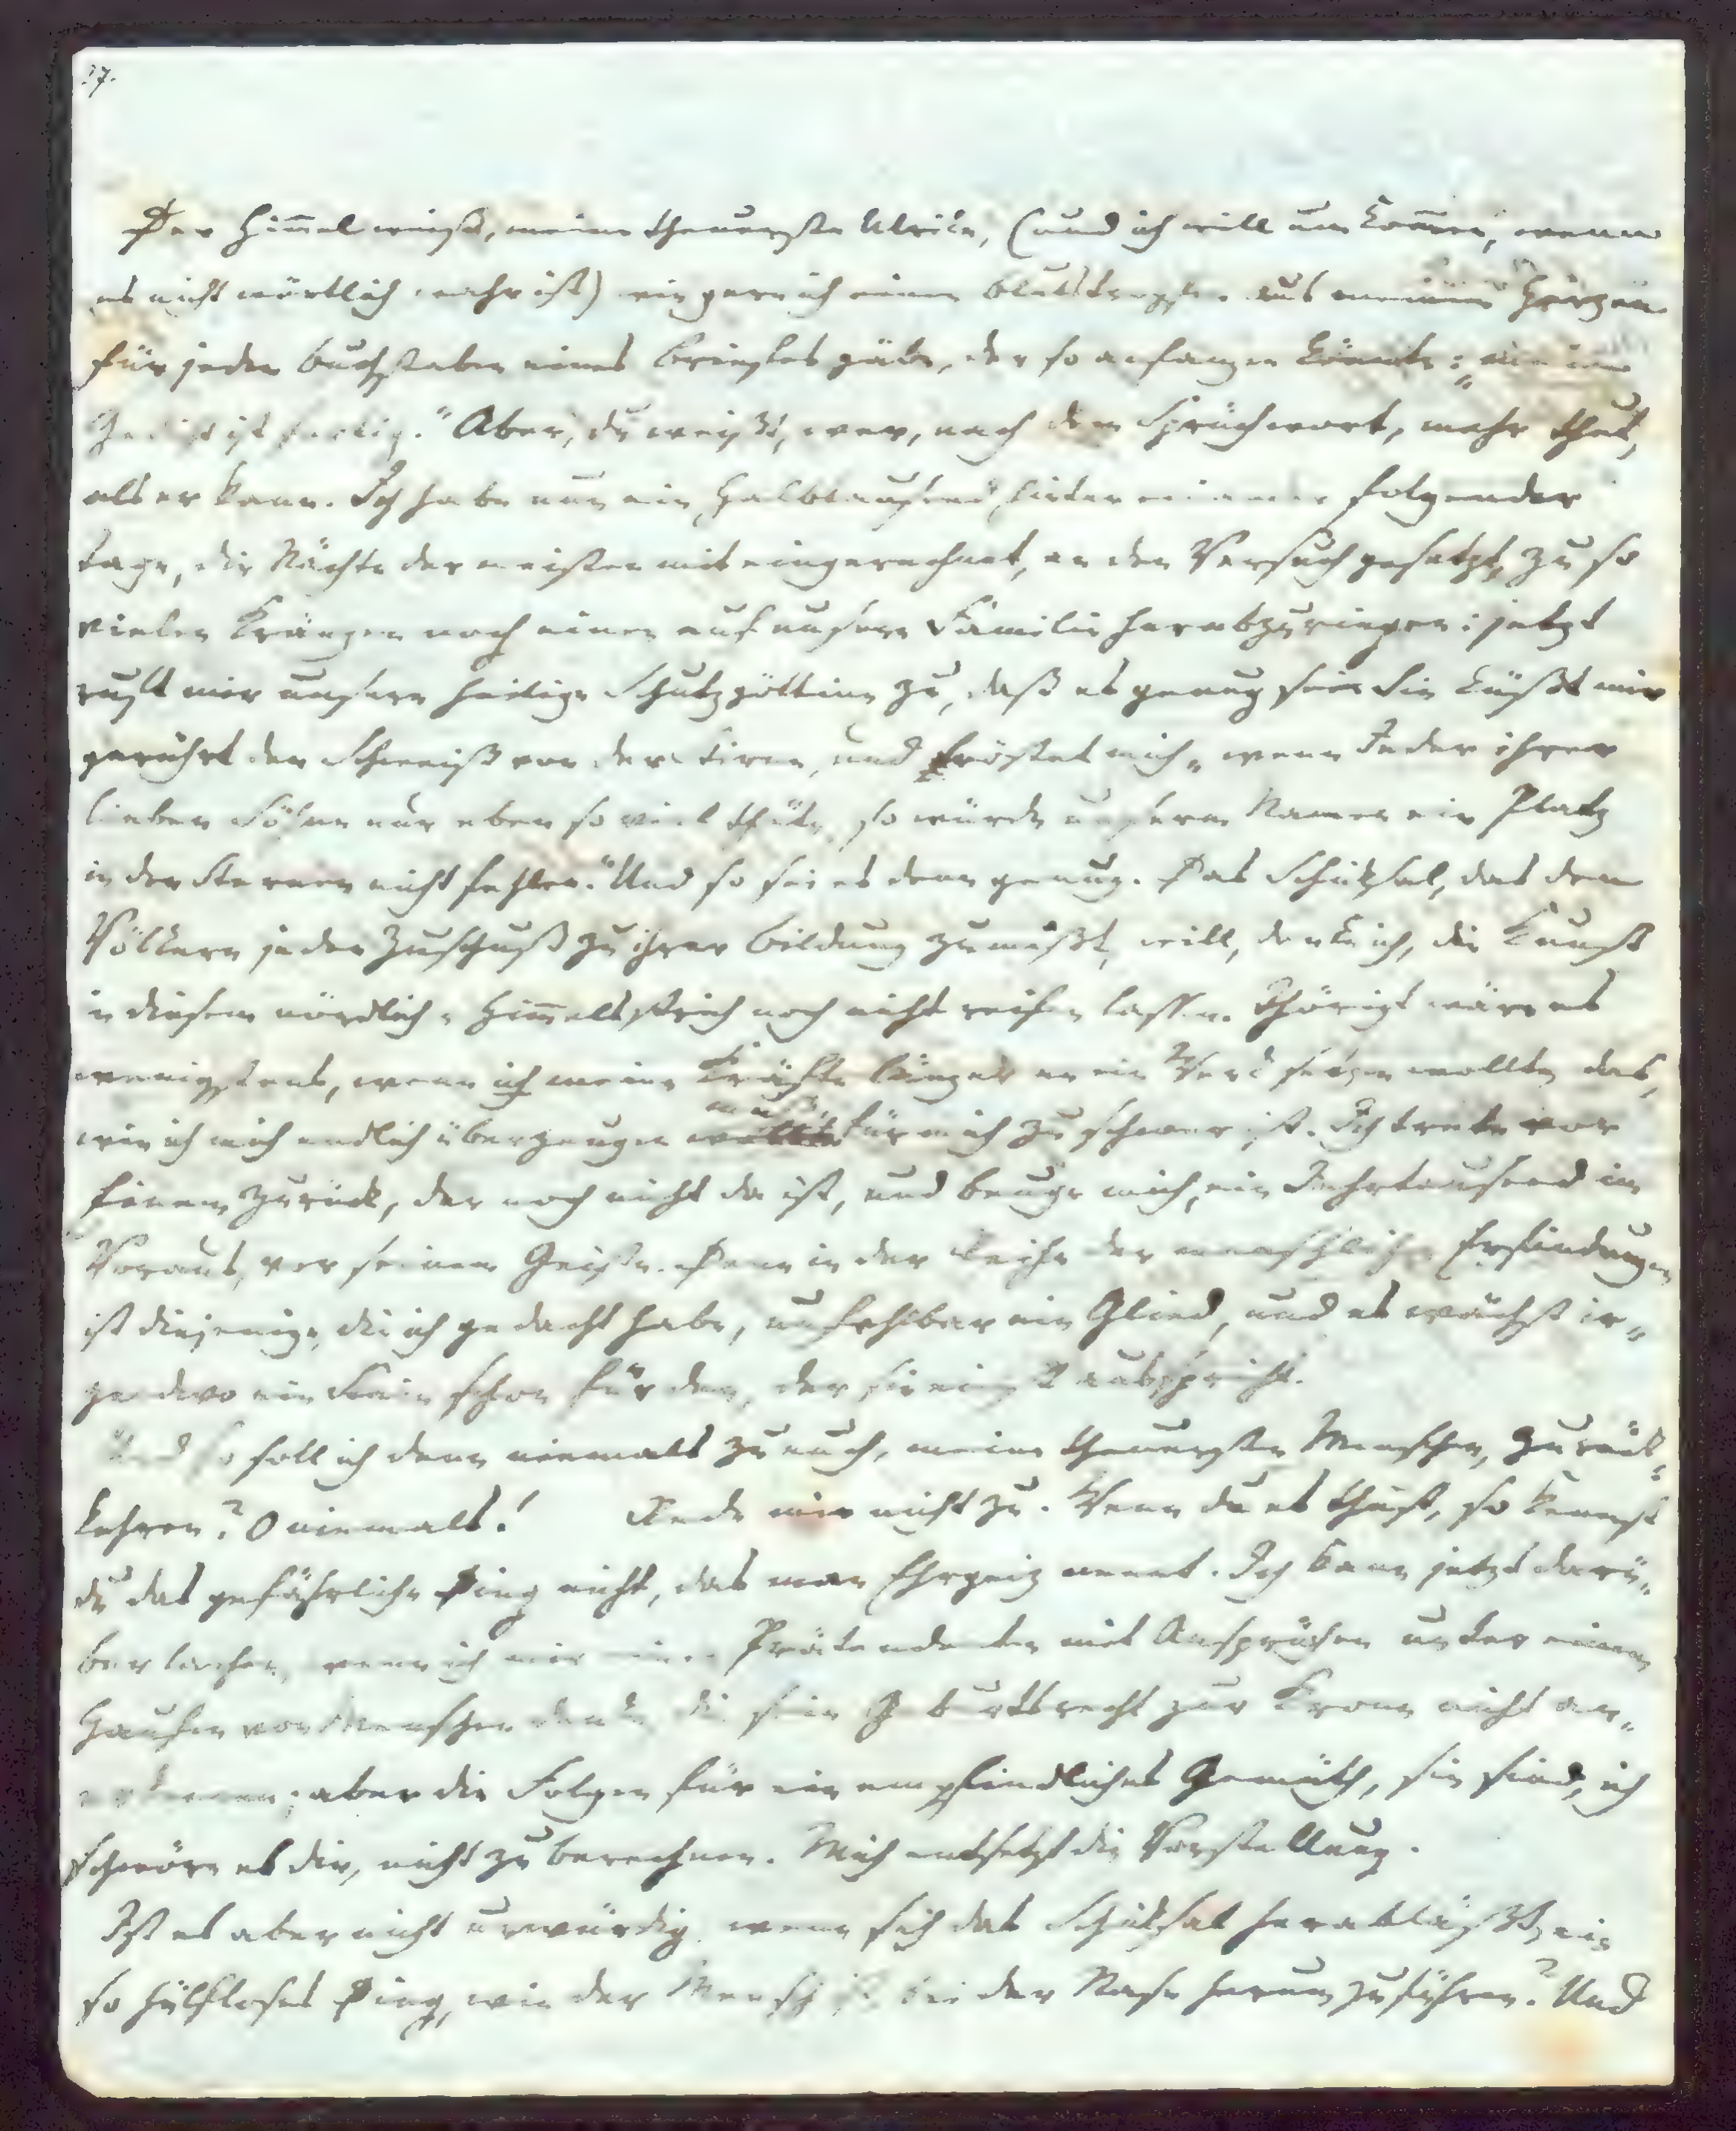 17.
Der Him̅el weiß, meine theuerste Ulrike, (und ich will umkom̅en, wenn
es nicht wörtlich wahr ist) wie gern ich einen Blutstropfen aus meinem Herzen
für jeden Buchstaben eines Briefes gäbe, der so anfangen könnte: „mein
Gedicht ist fertig.“ Aber, du weißt, wer, nach dem Sprüchwort, mehr thut,
als er kann. Ich habe nun ein Halbtausend hinter einander folgender
Tage, die Nächte der meisten mit eingerechnet, an den Versuch gesetzt, zu so
vielen Kränzen noch einen auf unsere Familie herabzuringen: jetzt
ruft mir unsere heilige Schutzgöttinn zu, daß es genug sei. Sie küßt mir
gerührt den Schweiß von der Stirne, und tröstet mich, „wenn Jeder ihrer
lieben Söhne nur eben so viel thäte, so würde unserm Namen ein Platz
in den Sternen nicht fehlen.“ Und so sei es denn genug. Das Schicksal, das den
Völkern jeden Zuschuß zu ihrer Bildung zumißt, will, denke ich, die Kunst
in diesem nördlichen Him̅elsstrich noch nicht reifen lassen. Thörigt wäre es
wenigstens, wenn ich meine Kräfte länger an ein Werk setzen wollte, das,
wie ich mich endlich überzeugen muß, für mich zu schwer ist. Ich trete vor
Einem zurück, der noch nicht da ist, und beuge mich, ein Jahrtausend im
Voraus, vor seinem Geiste. Denn in der Reihe der menschlichen Erfindungen
ist diejenige, die ich gedacht habe, unfehlbar ein Glied, und es wächst ir-
gendwo ein Stein schon für den, der sie einst ausspricht.
Und so soll ich denn niemals zu euch, meine theuersten Menschen, zurück-
kehren? O niemals! Rede mir nicht zu. Wenn du es thust, so kennst
du das gefährliche Ding nicht, das man Ehrgeiz nennt. Ich kann jetzt darü-
ber lachen, wenn ich mir einen Prätendenten mit Ansprüchen unter einem
Haufen von Menschen denke, die sein Geburtsrecht zur Krone nicht an-
erkennen; aber die Folgen für ein empfindliches Gemüth, sie sind, ich
schwöre es dir, nicht zu berechnen. Mich entsetzt die Vorstellung.
Ist es aber nicht unwürdig, wenn sich das Schicksal herabläßt, ein
so hülfloses Ding, wie der Mensch ist, bei der Nase herum zu führen? Und